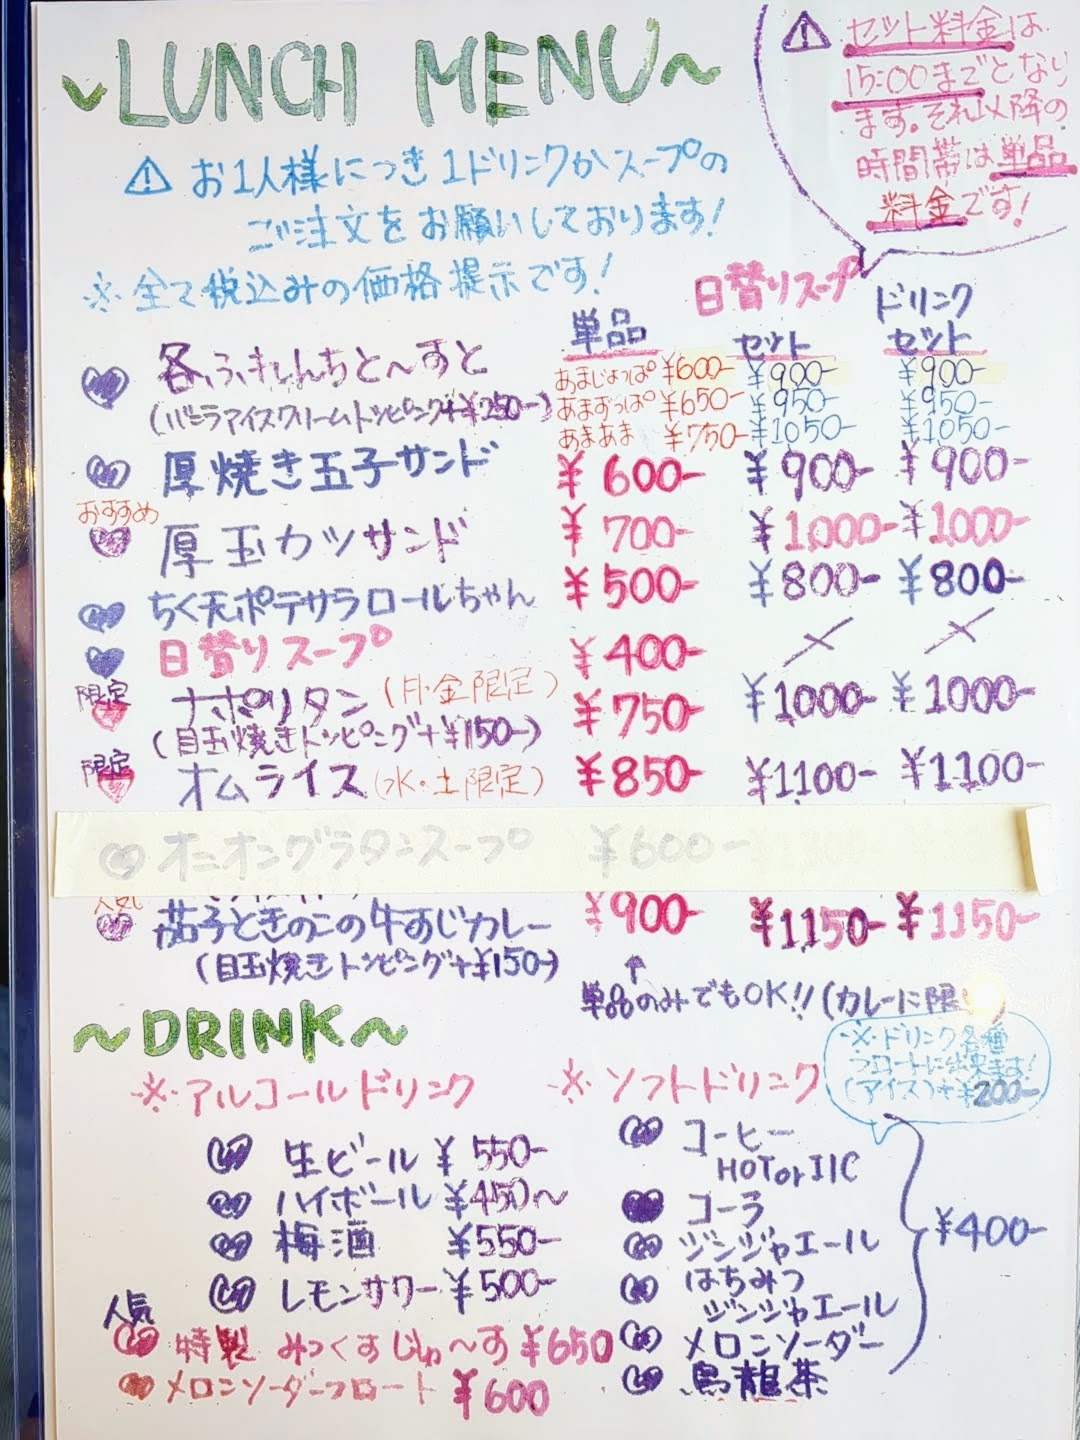 ~LUNCH MENU~
⚠ セット料金は
15:00までとなり
ます。それ以降の
時間帯は単品
料金です!
⚠ お1人様につき1ドリンクかスープの
ご注文をお願いしております!
※全て税込みの価格提示です!
単品 日替りスープセット ドリンクセット
各ふれんちと~すと あまじょっぱ ¥600- ¥900- ¥900-
(バニラアイスクリームトッピング+¥250-) あまずっぱ ¥650- ¥950- ¥950-
あまあま ¥750- ¥1050- ¥1050-
厚焼き玉子サンド ¥600- ¥900- ¥900-
おすすめ
厚玉カツサンド ¥700- ¥1000- ¥1000-
ちく天ポテサラロールちゃん ¥500- ¥800- ¥800-
日替りスープ ¥400- × ×
限定 ナポリタン(月・金限定) ¥750- ¥1000- ¥1000-
(目玉焼きトッピング+¥150-)
限定 オムライス(水・土限定) ¥850- ¥1100- ¥1100-
オニオングラタンスープ ¥600-
人気
茄子ときのこの牛すじカレー ¥900- ¥1150- ¥1150-
(目玉焼きトッピング+¥150-)
↑
単品のみでもOK!!(カレーに限
~DRINK~
※アルコールドリンク
生ビール ¥550-
ハイボール ¥450~
梅酒 ¥550-
レモンサワー ¥500-
人気
特製 みっくすじゅ~す ¥650
メロンソーダーフロート ¥600
※ソフトドリンク
※ドリンク各種
フロートに出来ます!
(アイス)+¥200-
コーヒー
HOT or ICE
コーラ
ジンジャエール
はちみつ
ジンジャエール
メロンソーダー
烏龍茶
¥400-